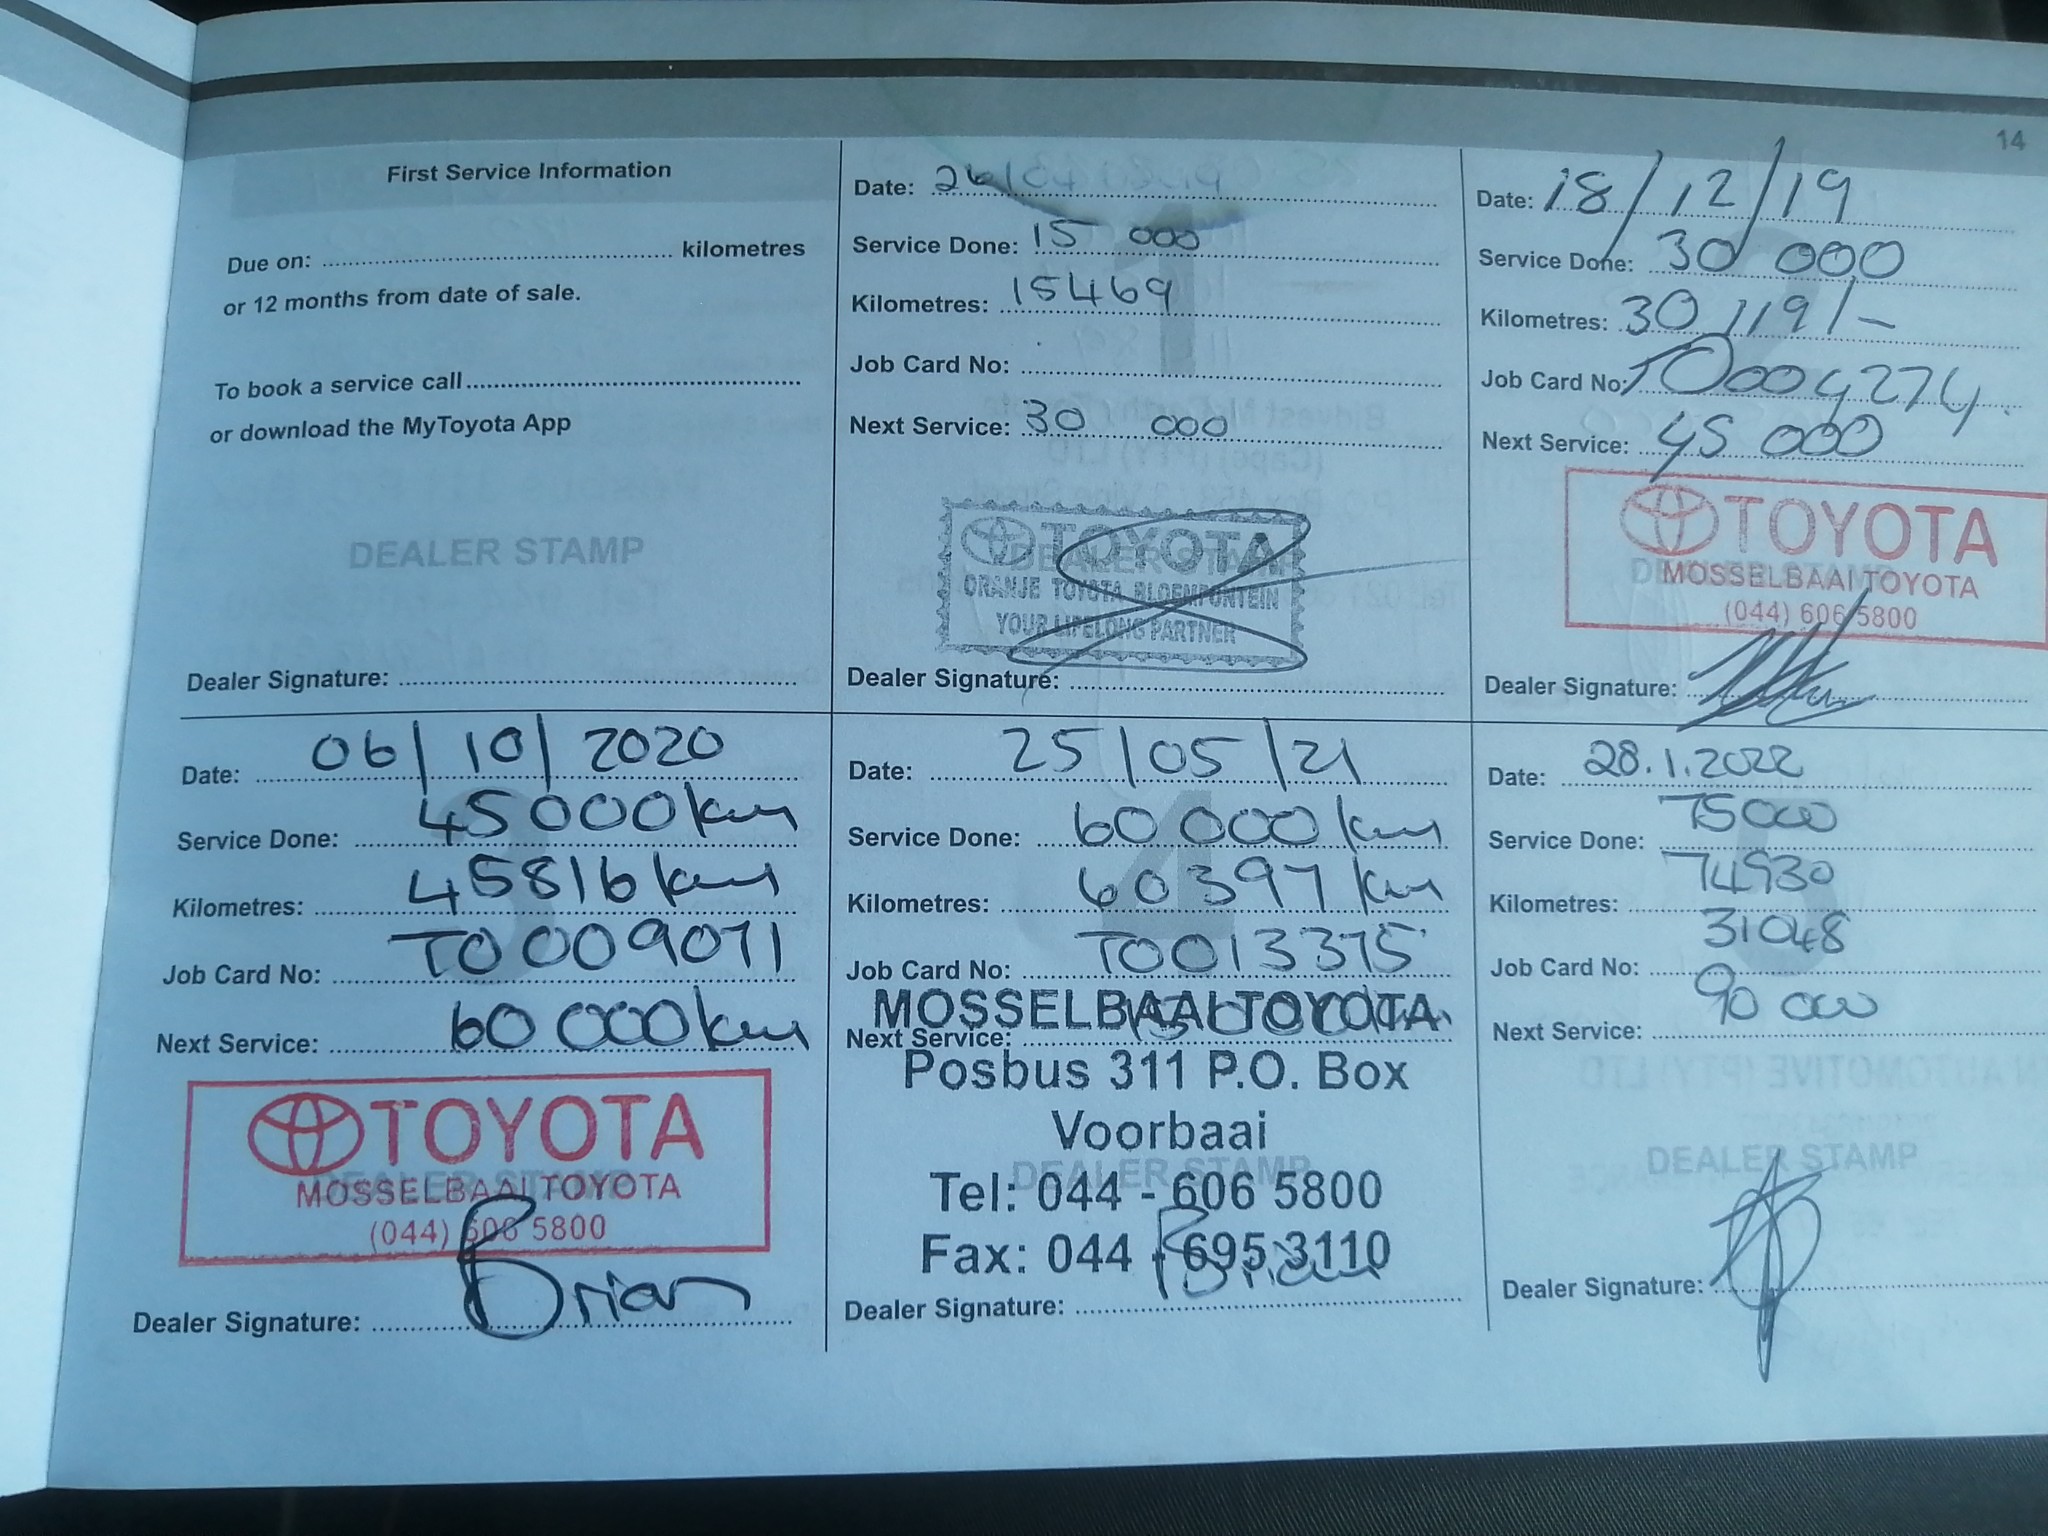 14
First Service Information
Due on: kilometres
or 12 months from date of sale.
To book a service call
or download the MyToyota App
DEALER STAMP
Dealer Signature:
Date: 26/
Service Done: 15 000
Kilometres: 15469
Job Card No:
Next Service: 30 000
DEALER STAMP
TOYOTA
ORANJE TOYOTA BLOEMFONTEIN
YOUR LIFELONG PARTNER
Dealer Signature:
Date: 18/12/19
Service Done: 30 000
Kilometres: 30 119/-
Job Card No: TO004274.
Next Service: 45 000
TOYOTA
DEALER STAMP
MOSSELBAAI TOYOTA
(044) 606 5800
Dealer Signature:
Date: 06/10/2020
Service Done: 45000km
Kilometres: 45816km
Job Card No: TO009071
Next Service: 60 000km
TOYOTA
DEALER STAMP
MOSSELBAAI TOYOTA
(044) 606 5800
Dealer Signature: Brian
Date: 25/05/21
Service Done: 60 000km
Kilometres: 60397km
Job Card No: TO013375
MOSSELBAAI TOYOTA
Next Service:
Posbus 311 P.O. Box
Voorbaai
DEALER STAMP
Tel: 044 - 606 5800
Fax: 044 - 695 3110
Dealer Signature: Brian
Date: 28.1.2022
Service Done: 75000
Kilometres: 74930
Job Card No: 31048
Next Service: 90 000
DEALER STAMP
Dealer Signature: